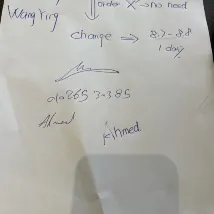 order X → no need
Wang Ying
change ⇒ 8.7 - 8.8
1 day
Ahmed
Ahmed